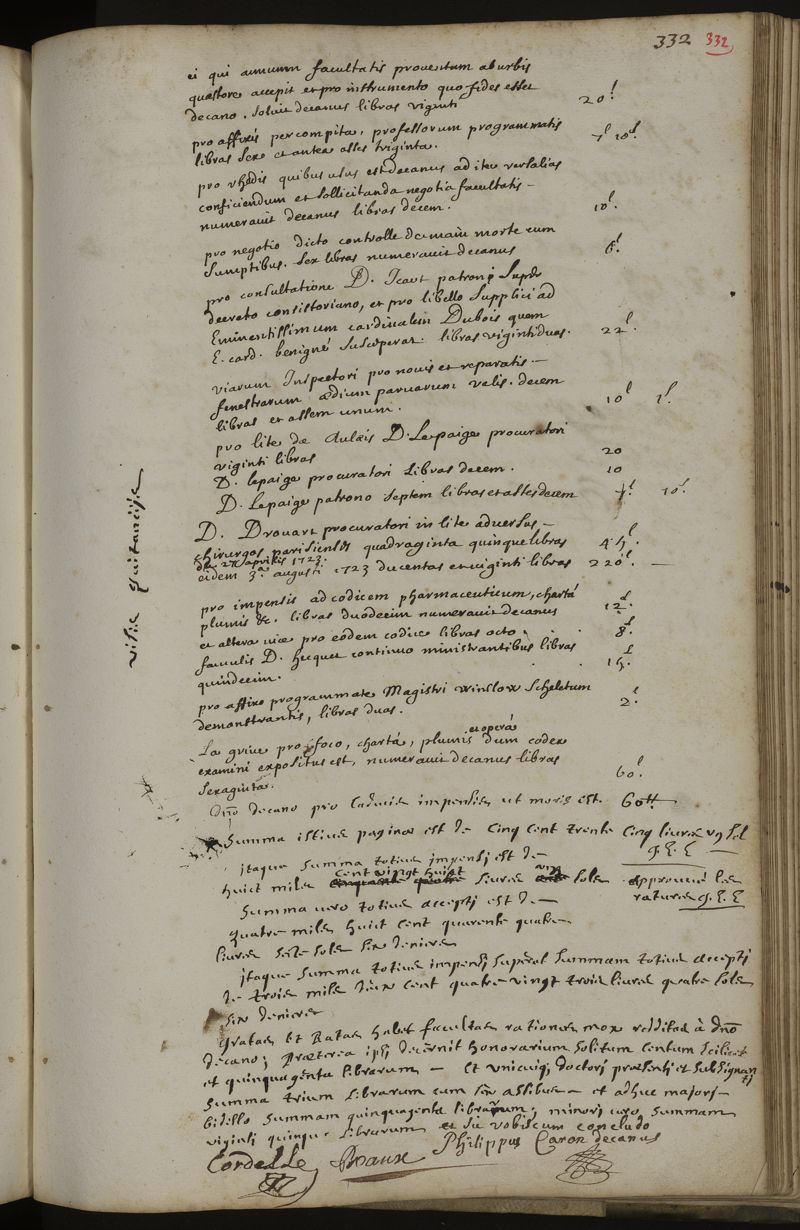 332 332
ei qui annuum facultatis proventum ab urbis
quæstore accepit et pro instrumento quo fides esset
decano. Solvit decanus libras viginti 20ˡ.
pro affixis per compita, professorum programmatis
libras sex et antea asses triginta. 7ˡ 10ˢ.
pro rhedis quibus usus est decanus ad iter versalias
conficiendum et sollicitanda negotia facultatis –
numeravit decanus libras decem. 10ˡ.
pro negotio dicto controlle de main morte cum
sumptibus. sex libras numeravit decanus 6ˡ.
pro consultatione D. Icart patroni supr
decreto consistoriano, et pro libello supplici ad
Eminentissimum cardinalem Dubois quem
E. card. benignè susceperat. libras viginti duas. 22ˡ.
viarum Inspectori pro novis et reparatis –
fenestrarum ædium parvarum velis. decem
libras et assem unum. 10ˡ 1ˢ.
pro lite de Aulæis D. Lepaige procuratori
viginti libras 20
D. lepaige procuratori libras decem. 10
D. Lepaige patrono septem libras et asses decem 7ˡ. 10ˢ.
D. Drouart procuratori in lite adversus –
chirurgos parisienses quadraginta quinque libras 45ˡ.
die 27 aprilis 1723.
eidem 3ᵃ augusti 1723 ducentas et viginti libras 220ˡ. –
visis quitanciis
pro impensis ad codicem pharmaceuticum, chartâ
plumis &c. libras duodecim numeravit decanus 12ˡ.
et altera vice pro eodem codice libras octo. 8ˡ.
famulis D. hecquet continuo ministrantibus libras
quindecim. 15ˡ.
pro affixo programmate Magistri winslow Scheletum
demonstrantis, libras duas. 2ˡ.
et operâ
La grive pro foco, chartâ, plumis dum codex
examini expositus est, numeravit decanus libras
sexaginta. 60ˡ.
Dnō decano pro impensis ut moris est. 60ᵗᵗ
Summa istius paginæ est de cinq cent trente cinq livres un sol
itaque summa totius impensi est de
cent vingt huict
huict mile cinquante quatre livres sols approuvé les
ratures
Summa vero totius accepti est de –
quatre mile huict cent quarente quatre
livres seize sols six deniers
itaque summa totius impensi superat summam totius accepti
de trois mile deux cent quatre vingt trois livres quatre sols
six deniers
gratas et Ratas habet facultas rationes mox redditas à dnō
decano; Præterea ipsi decernit honorarium solitum centum scilicet
et quinquagenta librarum – et unicuiq; doctori præsenti et subsignanti
summa trium librarum cum sex assibus – et adhuc majori –
bidello summam quinquagenta librarum; minori vero summam
viginti quinque librarum et sic vobiscum concludo
Philippus Caron decanus
Cordelle